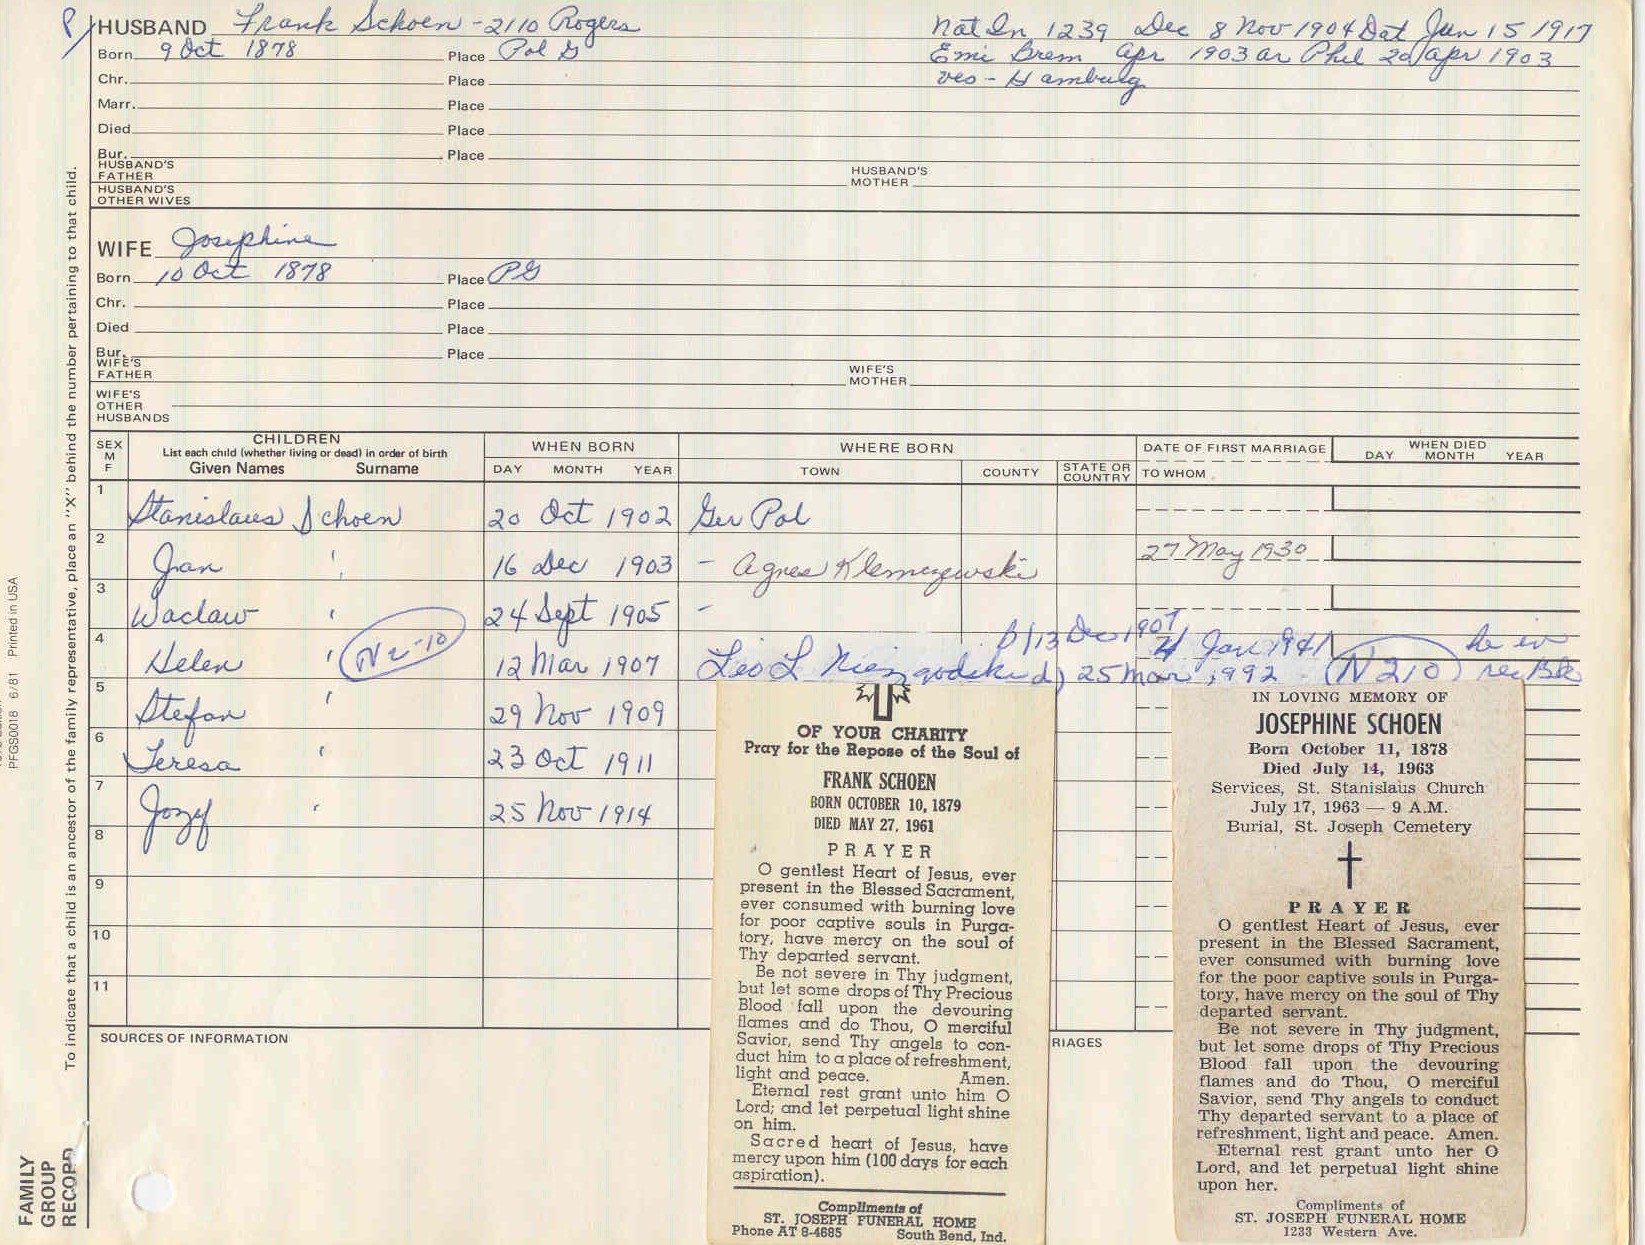 HUSBAND Frank Schoen - 2110 Rogers
Nat In 1239 Dec 8 Nov 1904 Dat Jun 15 1917
Born 9 Oct 1878 Place Pol G
Emi Brem apr 1903 ar Phil 20 apr 1903
Chr. Place
ves - Hamburg
Marr. Place
Died Place
Bur. Place
HUSBAND'S FATHER HUSBAND'S MOTHER
HUSBAND'S OTHER WIVES
WIFE Josephine
Born 10 Oct 1878 Place PG
Chr. Place
Died Place
Bur. Place
WIFE'S FATHER WIFE'S MOTHER
WIFE'S OTHER HUSBANDS
SEX M F
CHILDREN
List each child (whether living or dead) in order of birth
Given Names Surname
WHEN BORN
DAY MONTH YEAR
WHERE BORN
TOWN COUNTY STATE OR COUNTRY
DATE OF FIRST MARRIAGE
TO WHOM
WHEN DIED
DAY MONTH YEAR
1 Stanislaus Schoen 20 Oct 1902 Ger Pol
2 Jan " 16 Dec 1903 - Agnes Klemczewski 27 May 1930
3 Waclaw " 24 Sept 1905 -
b) 13 Dec 1907 4 Jan 1941
4 Helen " N2-10 12 Mar 1907 Leo L Niezgodski d) 25 Mar 1992 N210
5 Stefan " 29 Nov 1909
6 Teresa " 23 Oct 1911
7 Jozef " 25 Nov 1914
8
9
10
11
SOURCES OF INFORMATION
RIAGES
OF YOUR CHARITY
Pray for the Repose of the Soul of
FRANK SCHOEN
BORN OCTOBER 10, 1879
DIED MAY 27, 1961
PRAYER
O gentlest Heart of Jesus, ever
present in the Blessed Sacrament,
ever consumed with burning love
for poor captive souls in Purga-
tory, have mercy on the soul of
Thy departed servant.
Be not severe in Thy judgment,
but let some drops of Thy Precious
Blood fall upon the devouring
flames and do Thou, O merciful
Savior, send Thy angels to con-
duct him to a place of refreshment,
light and peace. Amen.
Eternal rest grant unto him O
Lord; and let perpetual light shine
on him.
Sacred heart of Jesus, have
mercy upon him (100 days for each
aspiration).
Compliments of
ST. JOSEPH FUNERAL HOME
Phone AT 8-4685 South Bend, Ind.
IN LOVING MEMORY OF
JOSEPHINE SCHOEN
Born October 11, 1878
Died July 14, 1963
Services, St. Stanislaus Church
July 17, 1963 — 9 A.M.
Burial, St. Joseph Cemetery
PRAYER
O gentlest Heart of Jesus, ever
present in the Blessed Sacrament,
ever consumed with burning love
for the poor captive souls in Purga-
tory, have mercy on the soul of Thy
departed servant.
Be not severe in Thy judgment,
but let some drops of Thy Precious
Blood fall upon the devouring
flames and do Thou, O merciful
Savior, send Thy angels to conduct
Thy departed servant to a place of
refreshment, light and peace. Amen.
Eternal rest grant unto her O
Lord, and let perpetual light shine
upon her.
Compliments of
ST. JOSEPH FUNERAL HOME
1233 Western Ave.
To indicate that a child is an ancestor of the family representative, place an "X" behind the number pertaining to that child.
PFGS0018 6/81 Printed in USA
FAMILY
GROUP
RECORD